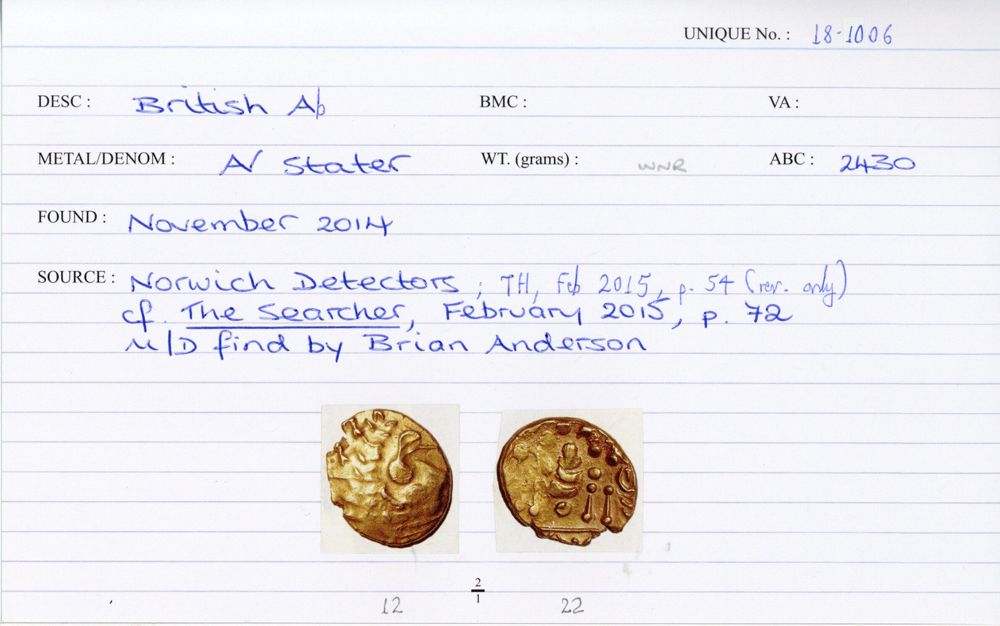 UNIQUE No. : 18-1006
DESC : British Ab BMC : VA :
METAL/DENOM : A/ Stater WT. (grams) : WNR ABC : 2430
FOUND : November 2014
SOURCE : Norwich Detectors ; TH, Feb 2015, p. 54 (rev. only)
cf. The Searcher, February 2015, p. 72
M/D find by Brian Anderson
2
1
12 22